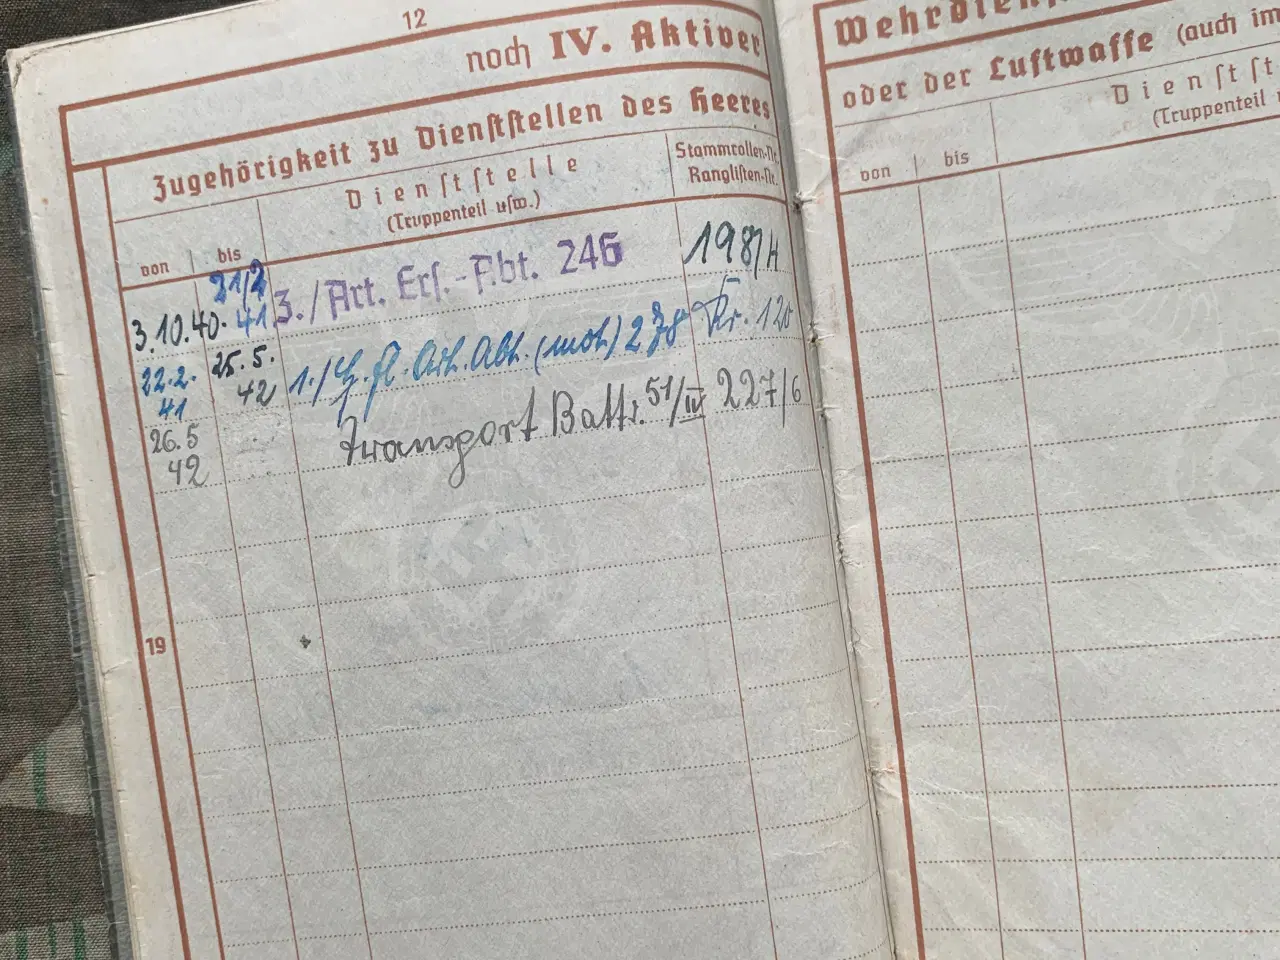 12
noch IV. Aktiver
Zugehörigkeit zu Dienststellen des Heeres
von
bis
Dienststelle
(Truppenteil usw.)
Stammrollen-Nr.
Ranglisten-Nr.
3.10.40.
21/2
41.
3./Art. Ers.-Abt. 246
1987/H
22.2.
41
25.5.
42
1./ fl. Art. Abt. (mot) 278
Kr. 120
26.5
42
Transport Battr. 51/IV
227/6
19
Wehrdien
oder der Luftwaffe (auch im
von
bis
Dienstst
(Truppenteil